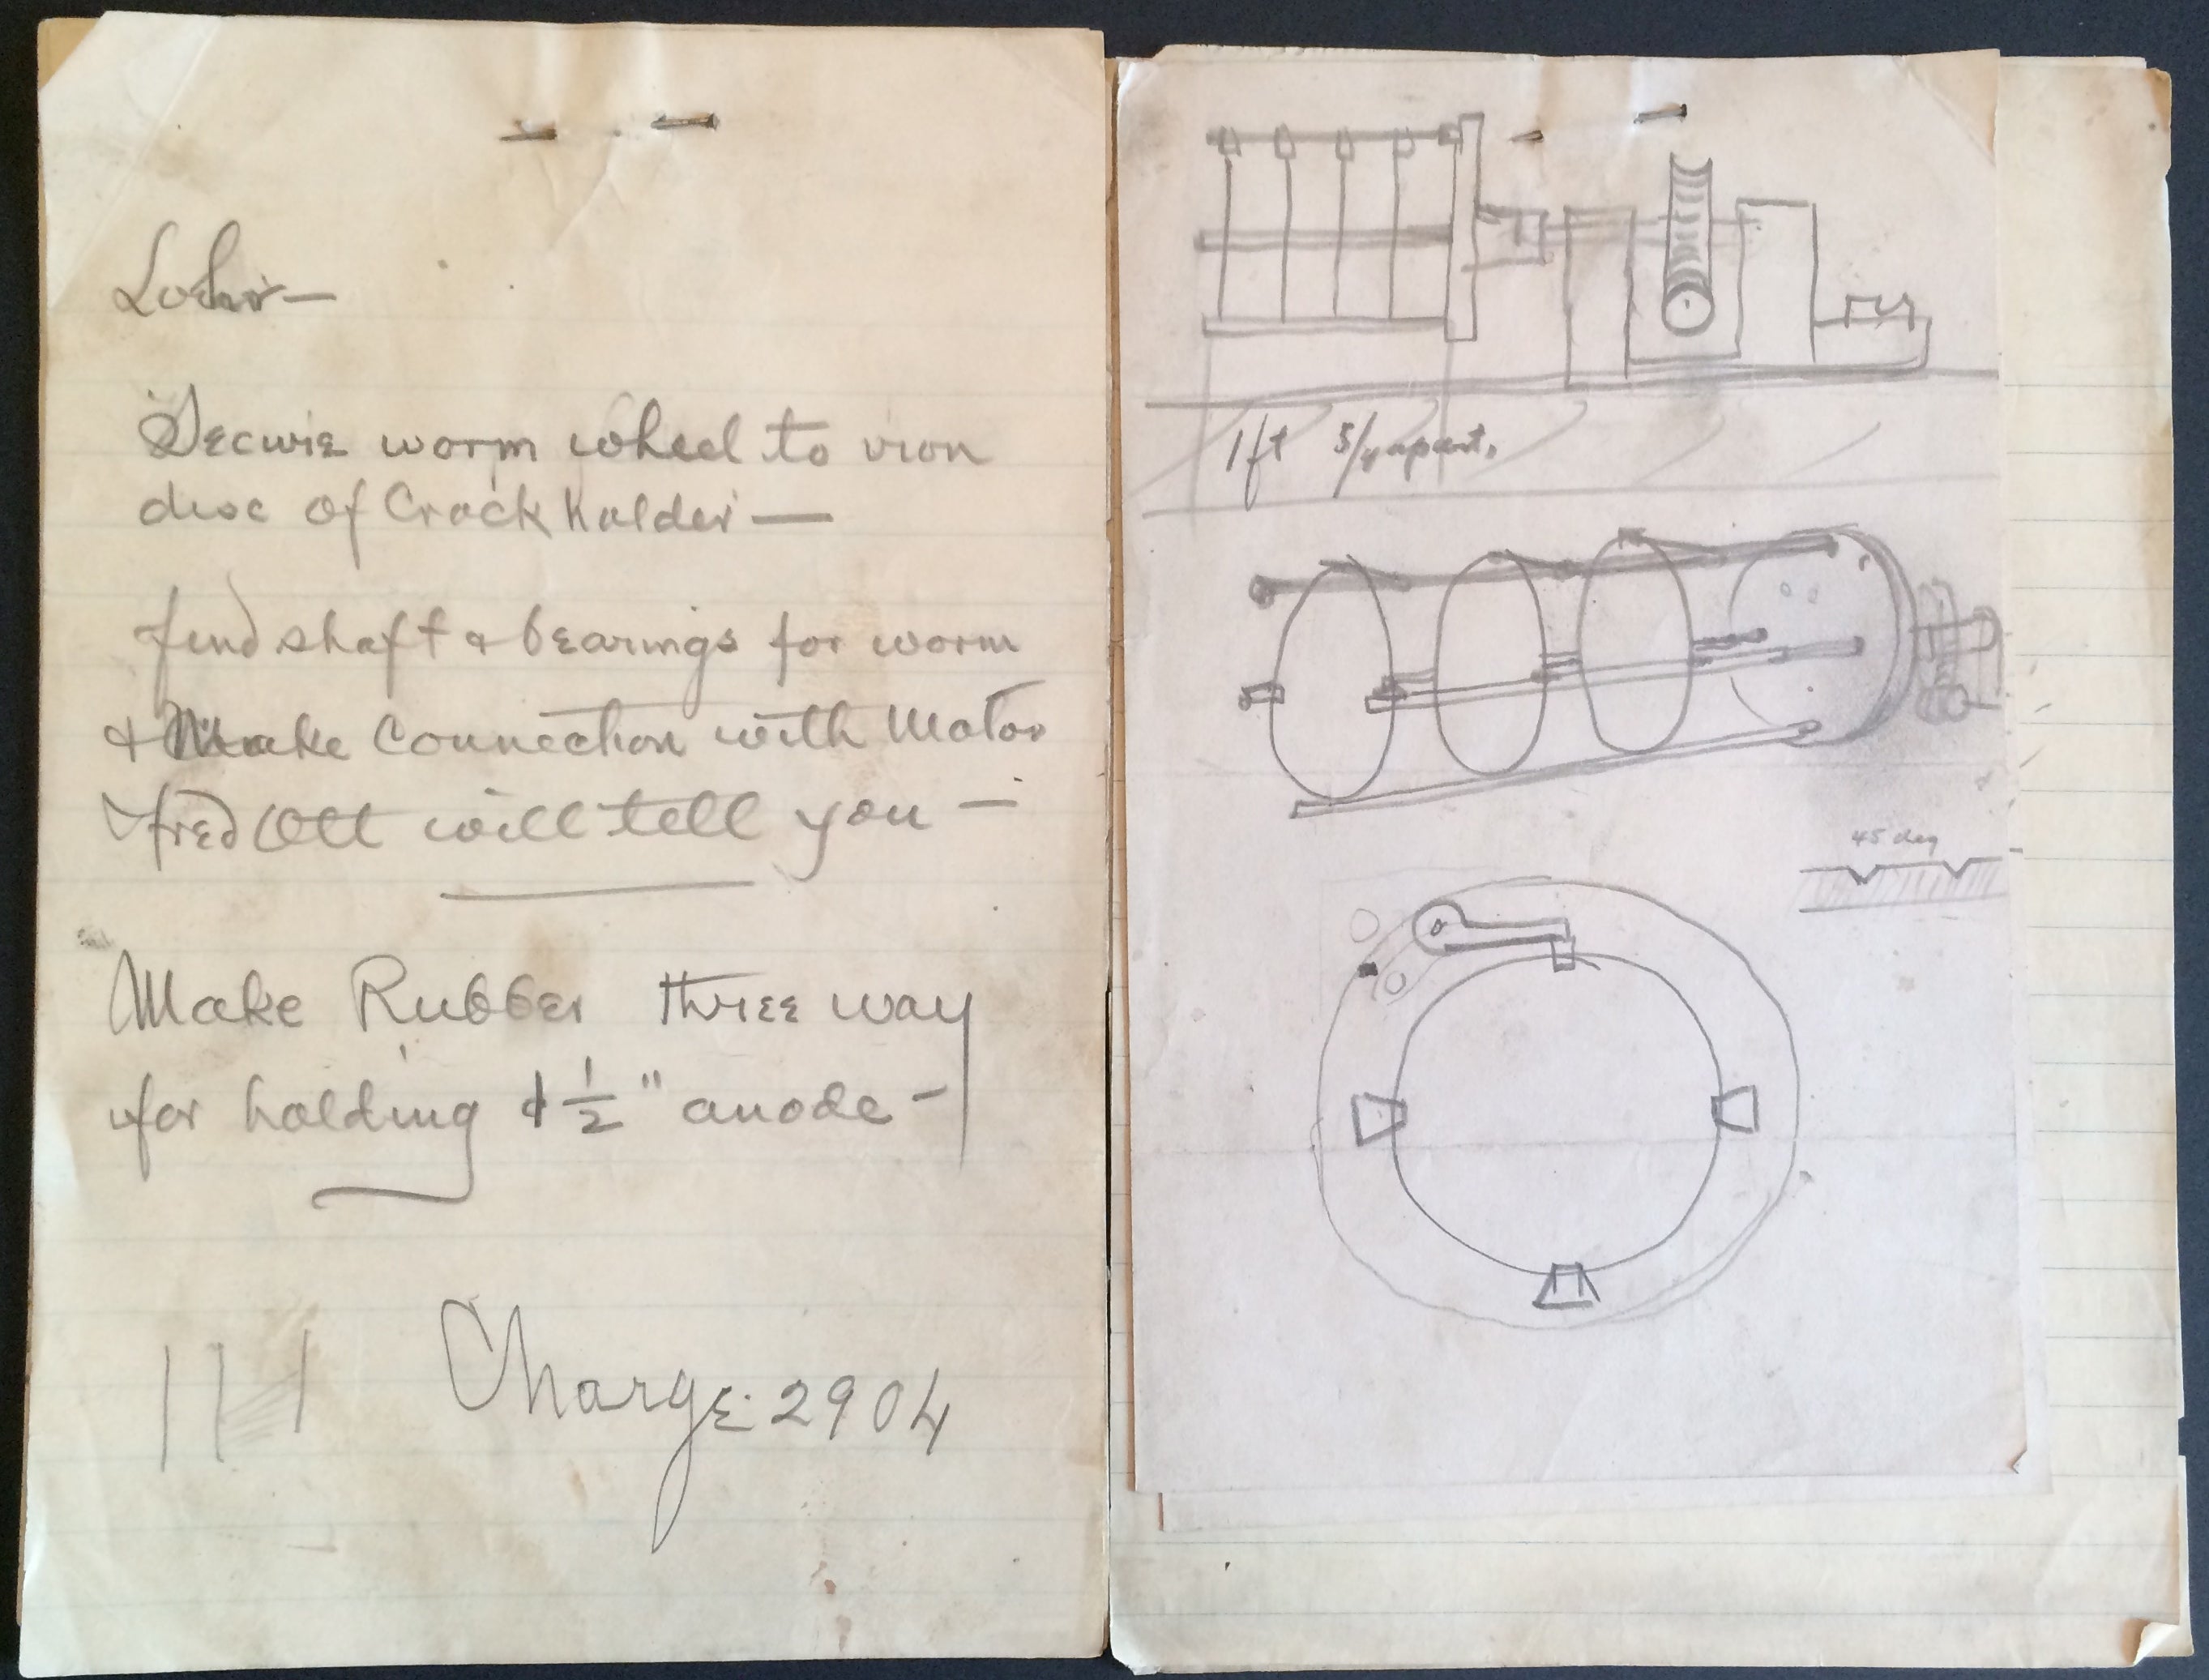 Secure worm wheel to iron
disc of Crack holder —
find shaft & bearings for worm
& Make Connection with Motor
Fred Ott will tell you —
Make Rubber three way
for holding 1/2" anode —
Charge 2904
1ft 5/4 apart.
45 deg